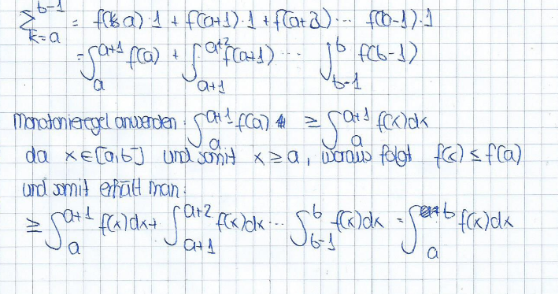 ∑_{k=a}^{b-1} = f(a)·1 + f(a+1)·1 + f(a+2) ... f(b-1)·1
= ∫_a^{a+1} f(a) + ∫_{a+1}^{a+2} f(a+1) ... ∫_{b-1}^b f(b-1)
Monotonieregel anwenden: ∫_a^{a+1} f(a) ≥ ∫_a^{a+1} f(x)dx
da x∈[a,b] und somit x≥a, woraus folgt f(x)≤f(a)
und somit erhält man:
≥ ∫_a^{a+1} f(x)dx + ∫_{a+1}^{a+2} f(x)dx ... ∫_{b-1}^b f(x)dx = ∫_a^b f(x)dx